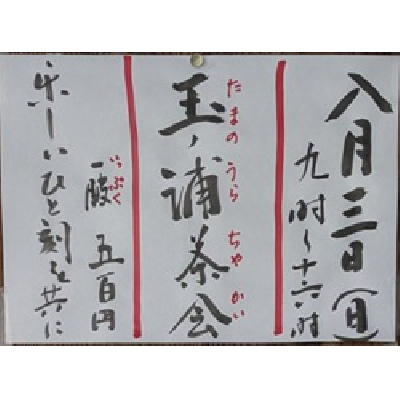 八月三日(日)
九時〜十六時
玉ノ浦茶会
たまのうらちゃかい
一服 五百円
いっぷく
楽しいひと刻を共に